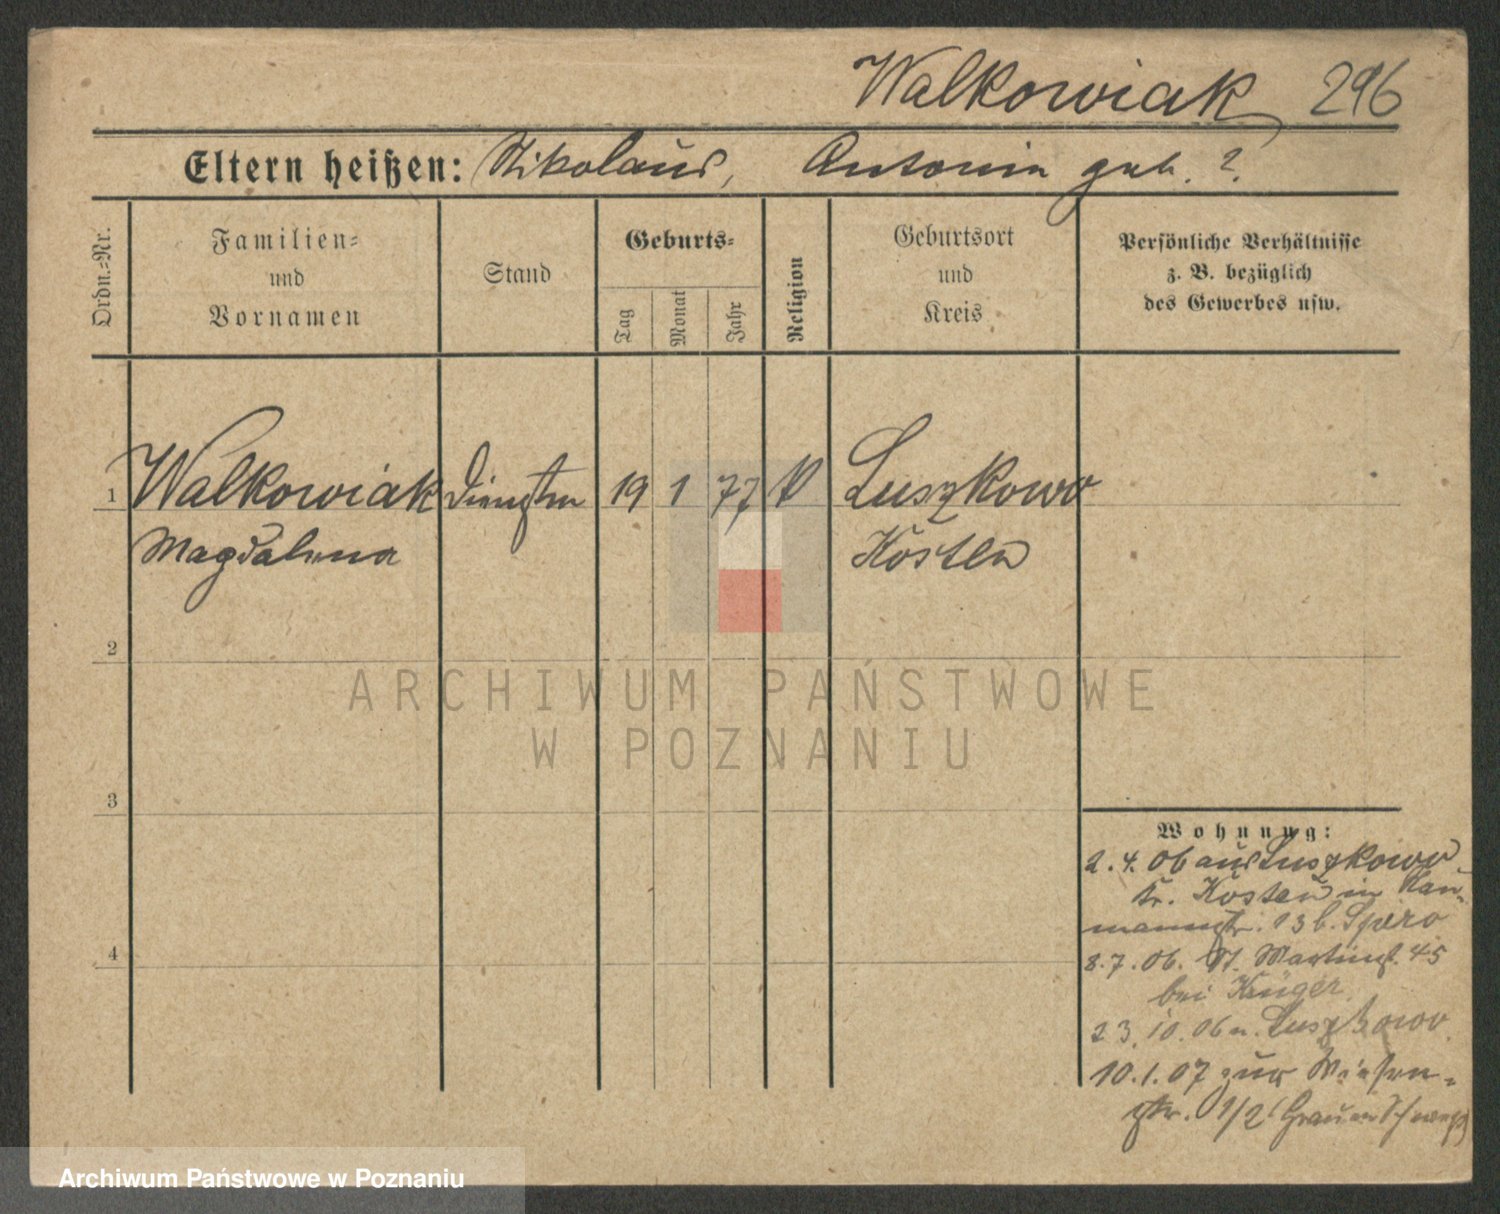 Walkowiak 296
Eltern heißen: Nikolaus, Antonin geb. ?
Ordn.-Nr.
Familien-
und
Vornamen
Stand
Geburts-
Tag
Monat
Jahr
Religion
Geburtsort
und
Kreis
Persönliche Verhältnisse
z. B. bezüglich
des Gewerbes usw.
1 Walkowiak 19 1 77 K Luszkowo
Magdalena Kosten
2
ARCHIWUM PAŃSTWOWE
W POZNANIU
3
Wohnung:
2.4.06 aus Luszkowo
Kr. Kosten in Nau-
mannstr. 13 b. Spiro
4
8.7.06. St. Martinst. 45
bei Krüger
23.10.06 n. Luszkowo
10.1.07 zur Wiesen-
str. 1/2
Archiwum Państwowe w Poznaniu